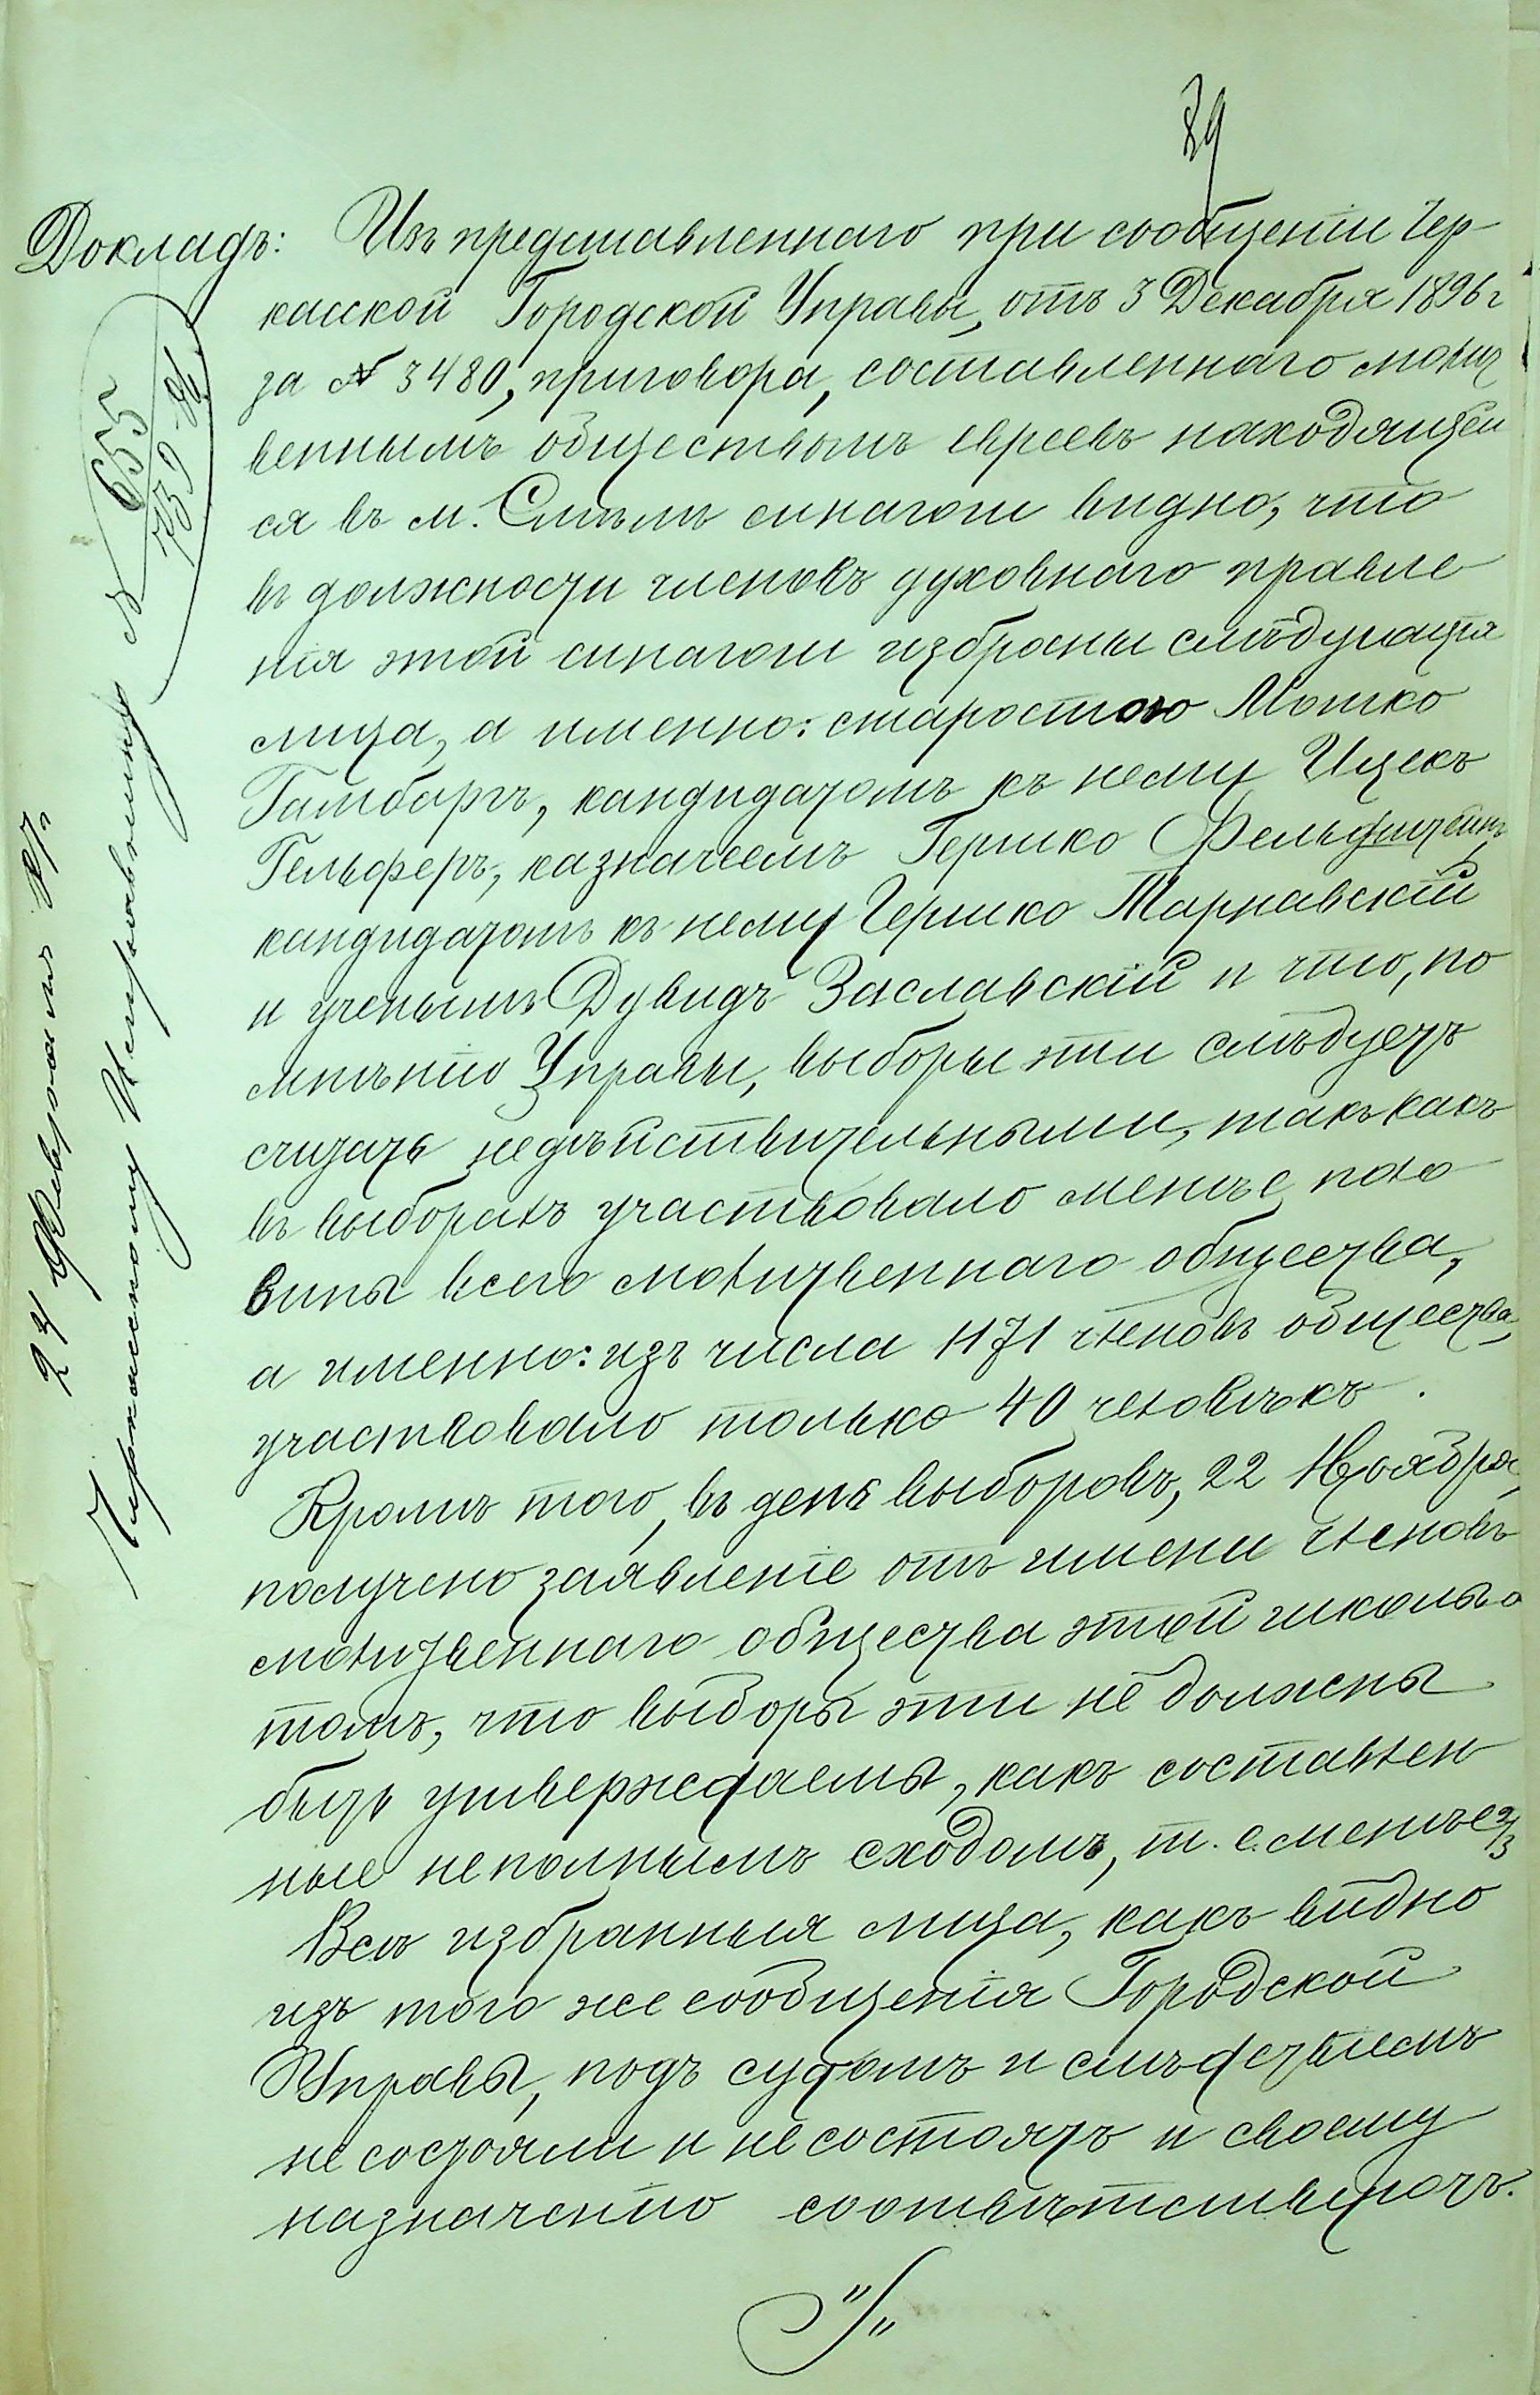 39
Докладъ: Изъ представленнаго при сообщеніи Чер-
касской Городской Управы, отъ 3 Декабря 1896 г
за № 3480, приговора, составленнаго молит
веннымъ обществомъ евреевъ находящей
ся въ м. Смѣлѣ синагоги видно, что
въ должности членовъ духовнаго правле
нія этой синагоги избраны слѣдующія
лица, а именно: старостою Мошко
Гамбаргъ, кандидатомъ къ нему Ицекъ
Гельферъ, казначеемъ Гершко Фельдштейнъ,
кандидатомъ къ нему Гершко Тарнавскій
и ученымъ Дувидъ Заславскій и что, по
мнѣнію Управы, выборы эти слѣдуетъ
считать недѣйствительными, такъ какъ
въ выборахъ участвовало менѣе поло
вины всего молитвеннаго общества,
а именно: изъ числа 1171 членовъ общества,
участвовало только 40 человѣкъ.
Кромѣ того, въ день выборовъ, 22 Ноября,
получено заявленіе отъ имени членовъ
молитвеннаго общества этой школы о
томъ, что выборы эти не должны
быть утверждаемы, какъ составлен
ные неполнымъ сходомъ, т. е. менѣе 2/3
Всѣ избранныя лица, какъ видно
изъ того же сообщенія Городской
Управы, подъ судомъ и слѣдствіемъ
не состояли и не состоятъ и своему
назначенію соотвѣтствуютъ.
24 Февраля 97 г.
Черкасскому Исправнику № 655